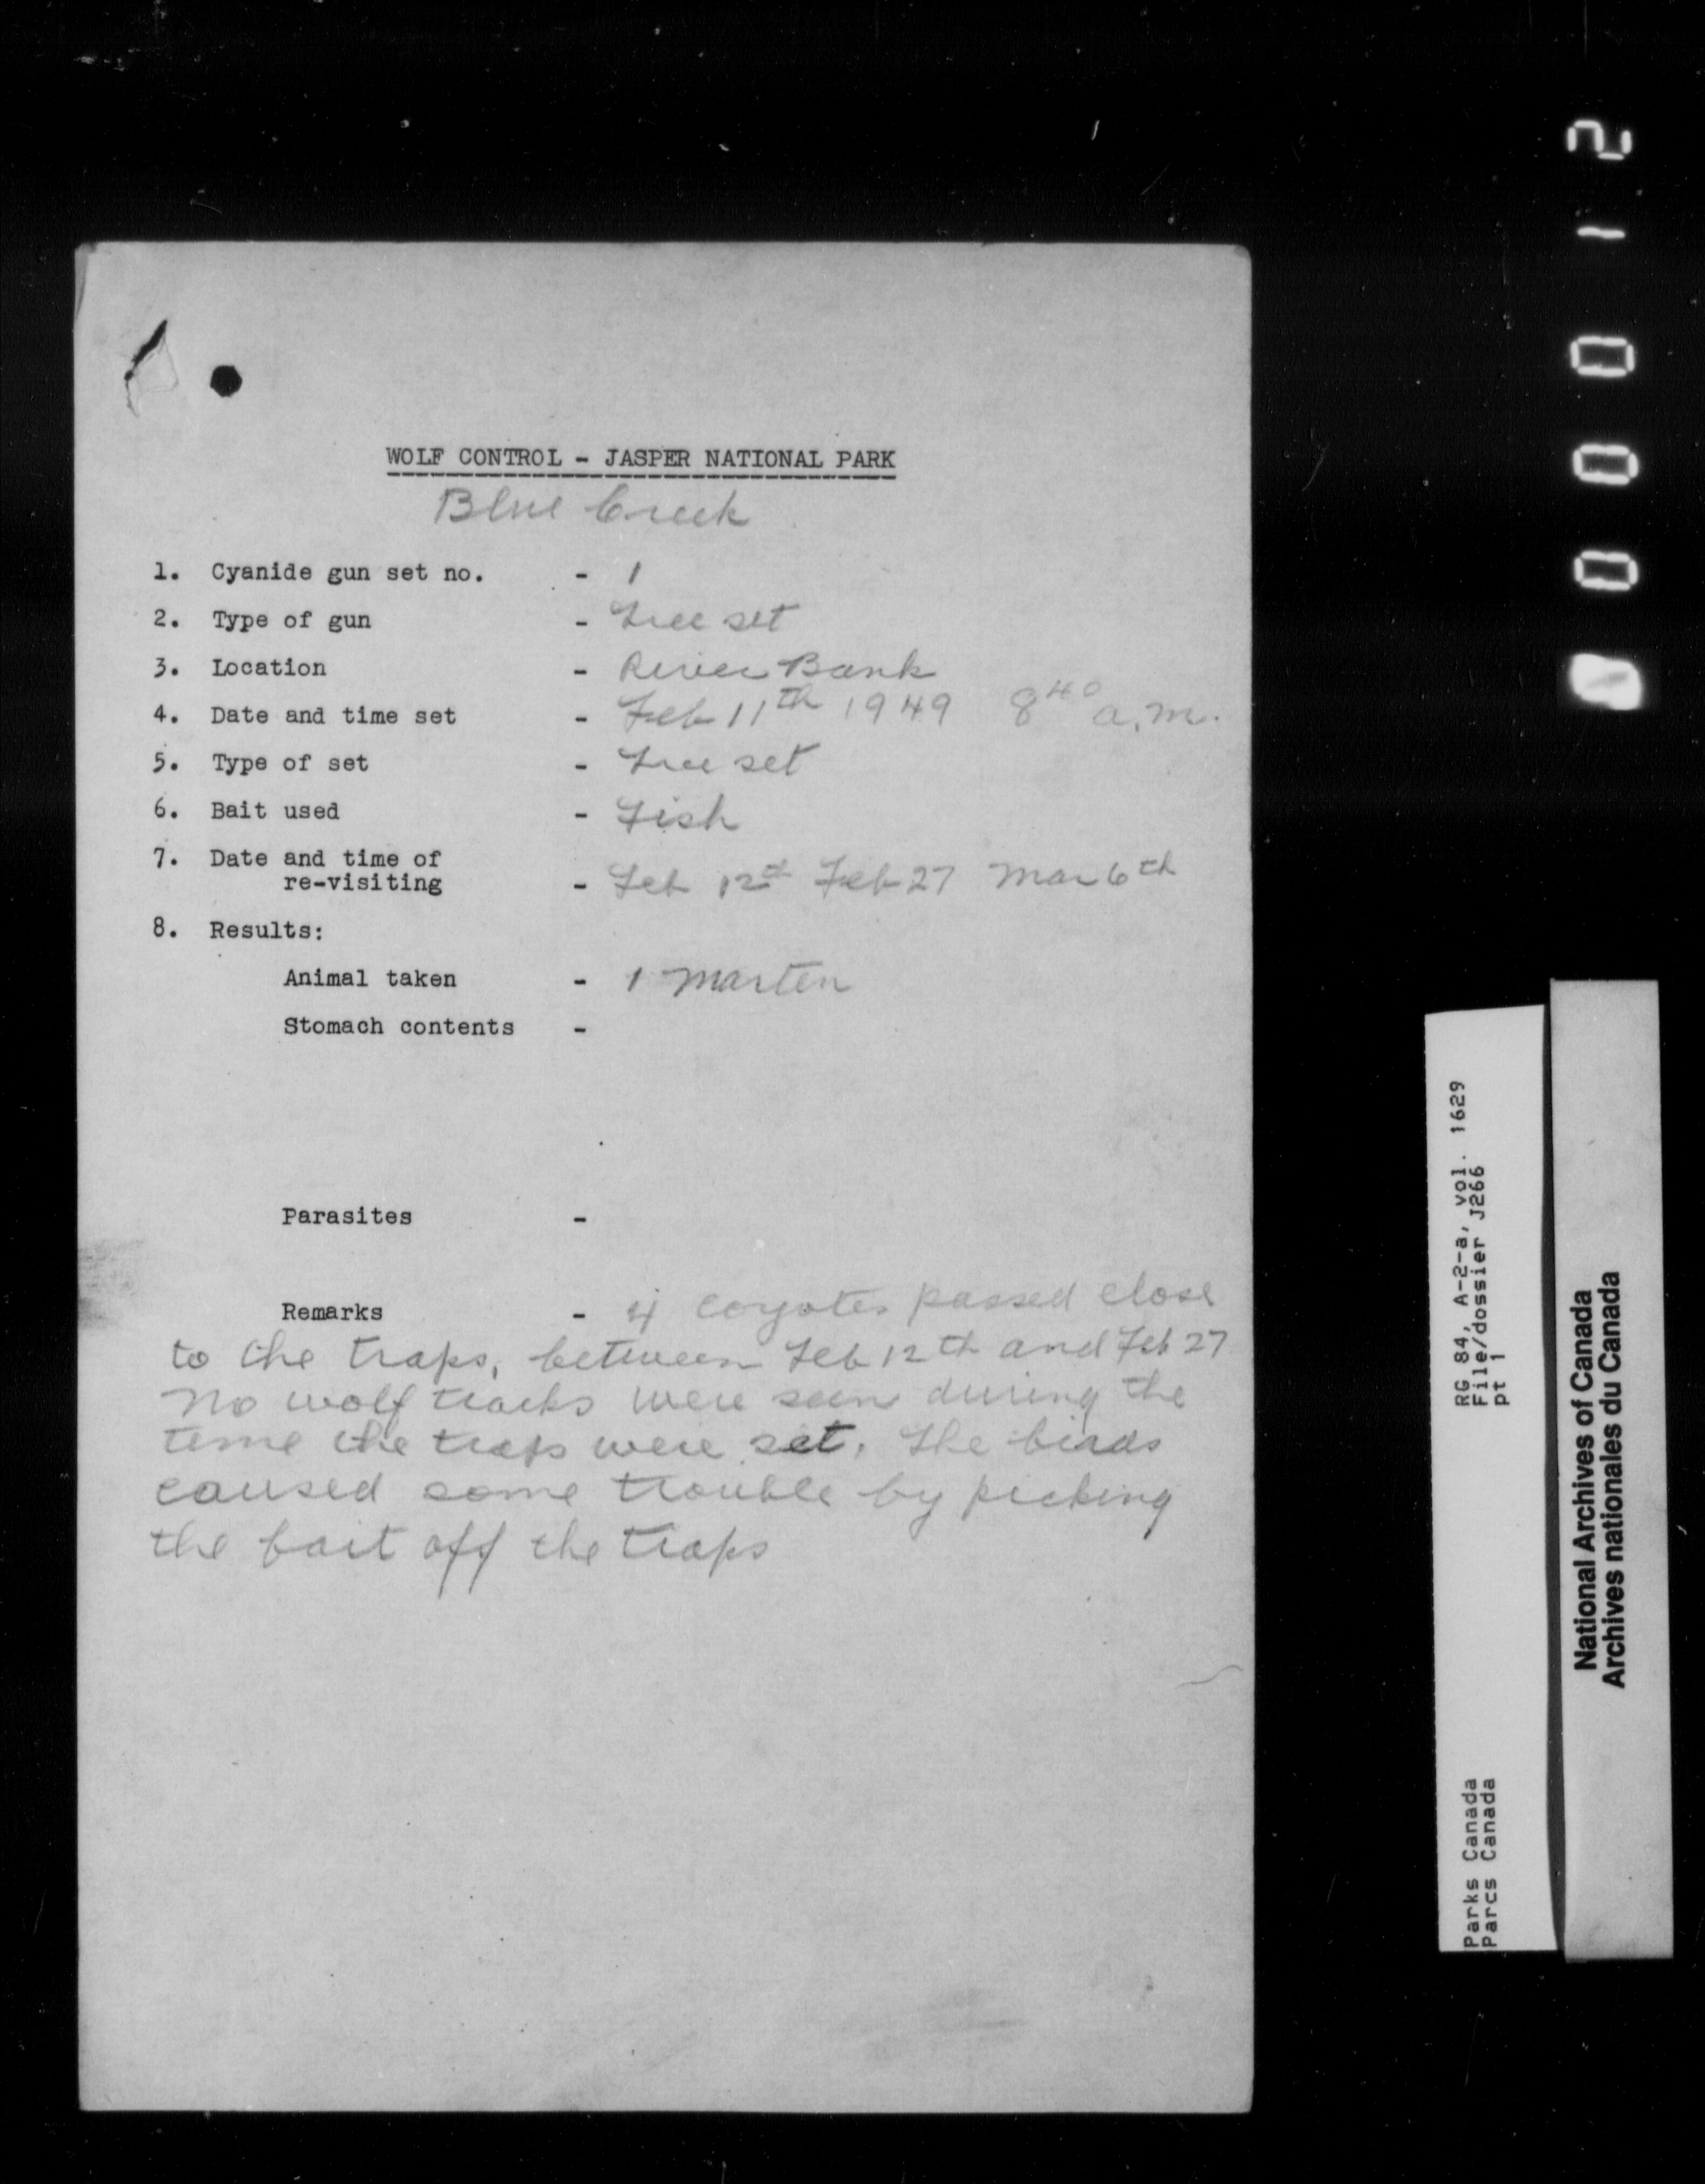 WOLF CONTROL - JASPER NATIONAL PARK
Blue Creek
1. Cyanide gun set no. - 1
2. Type of gun - Tree set
3. Location - River Bank
4. Date and time set - Feb 11th 1949 8 40 a.m.
5. Type of set - Tree set
6. Bait used - Fish
7. Date and time of
re-visiting - Feb 12th Feb 27 Mar 6th
8. Results:
Animal taken - 1 Marten
Stomach contents -
Parasites -
Remarks - 4 Coyotes passed close
to the traps, between Feb 12th and Feb 27
No wolf tracks were seen during the
time the traps were set. The birds
caused some trouble by picking
the bait off the traps
000012
RG 84, A-2-a, vol. 1629
File/dossier J266
pt 1
Parks Canada
Parcs Canada
National Archives of Canada
Archives nationales du Canada